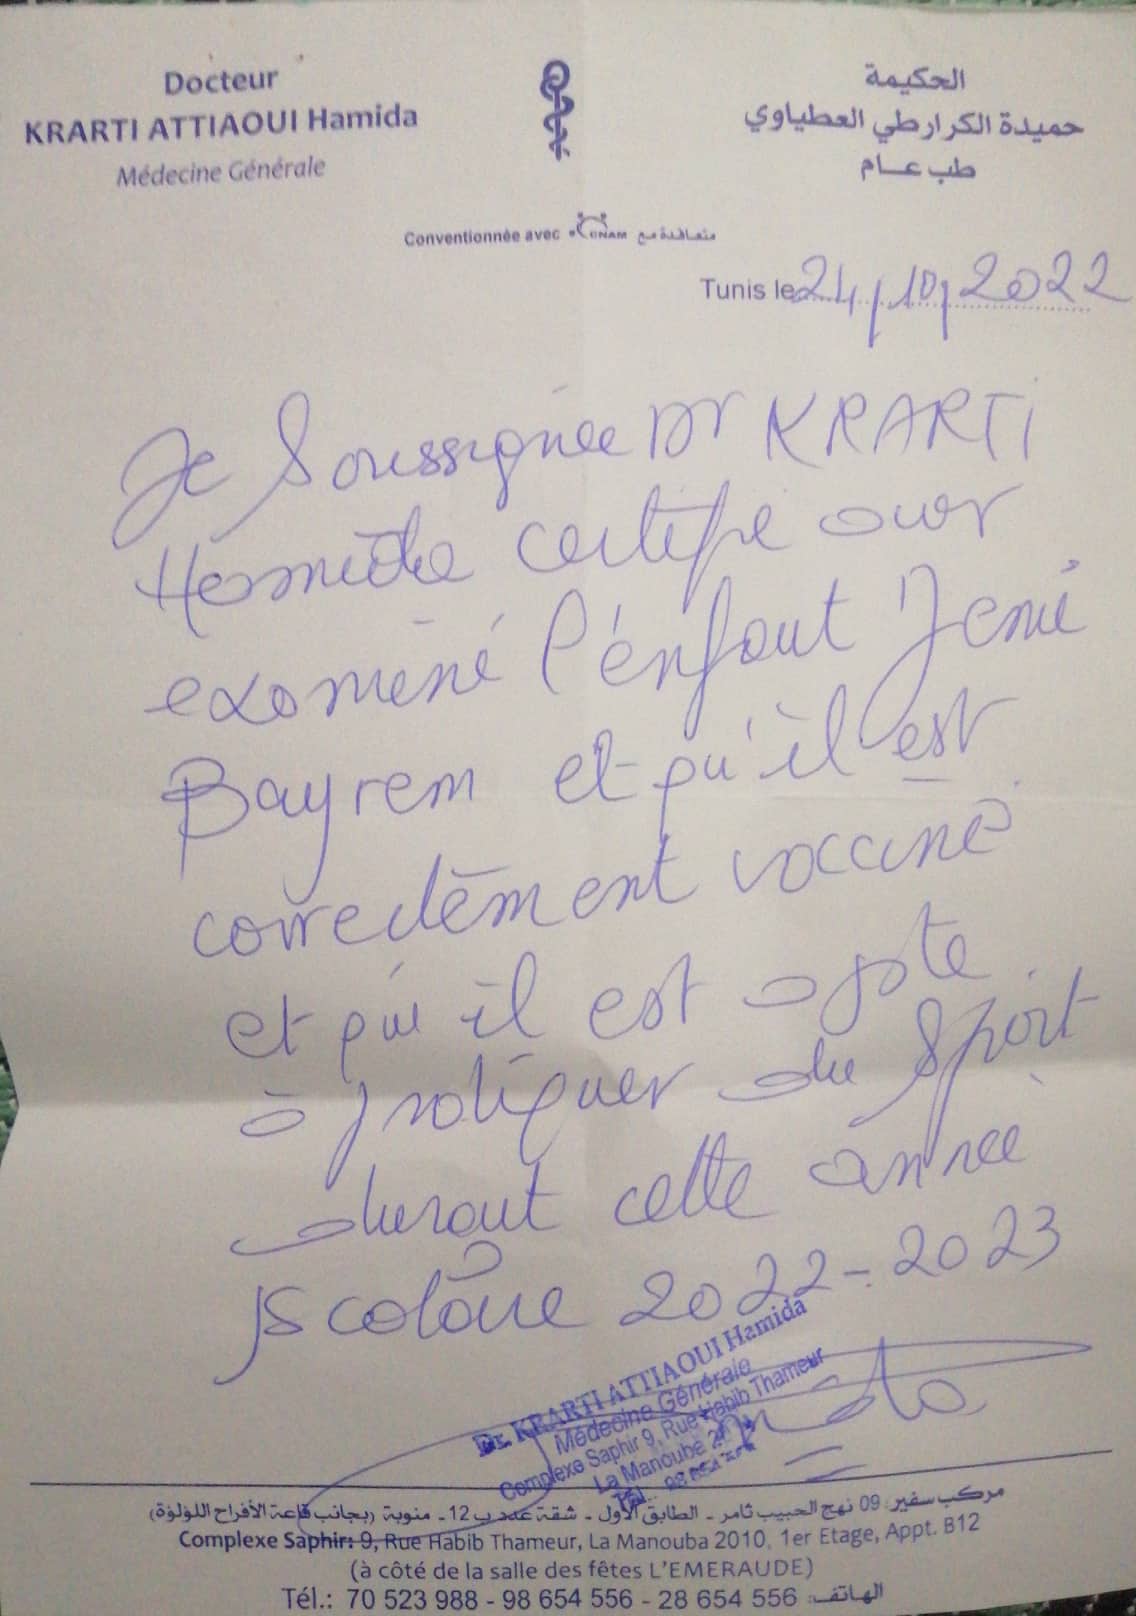 Docteur
KRARTI ATTIAOUI Hamida
Médecine Générale
الحكيمة
حميدة الكرارطي العطياوي
طب عـــام
Conventionnée avec CNAM متعـاقـدة مـع
Tunis le 24/10/2022
Je Soussignée Dr KRARTI
Hamida certifie avoir
examiné l'énfant
Bayrem et qu'il est
correctement vacciné
et qu'il est apte
à pratiquer du Sport
durant cette année
Scolaire 2022-2023
Dr. KRARTI ATTIAOUI Hamida
Médecine Générale
Complexe Saphir 9, Rue Habib Thameur
La Manouba
Tél.
مركب سفير: 09 نهج الحبيب ثامر - الطابق الأول - شقة عدد ب 12 - منوبة (بجانب قاعة الأفراح اللؤلؤة)
Complexe Saphir: 9, Rue Habib Thameur, La Manouba 2010, 1er Etage, Appt. B12
(à côté de la salle des fêtes L'EMERAUDE)
Tél.: 70 523 988 - 98 654 556 - 28 654 556 الهـاتف: